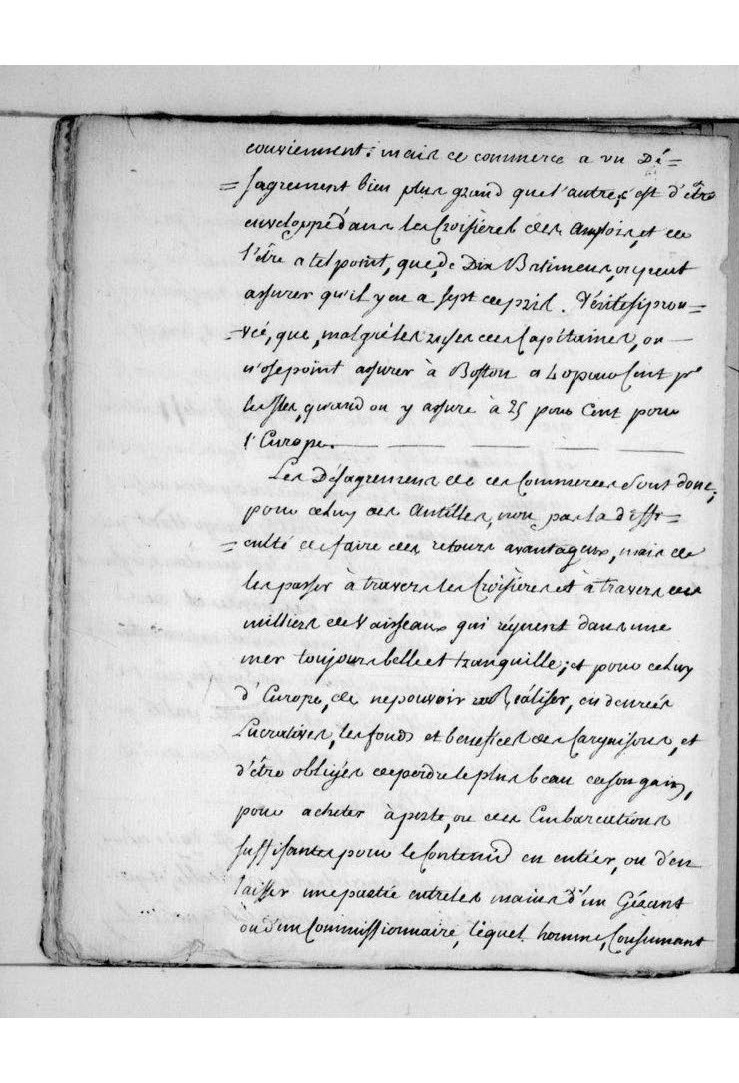 conviennent; mais ce commerce a un Dé=
=sagrement bien plus grand que l'autre, c'est d'être
enveloppé dans les Croisières des Anglois, et de
l'être a tel point, que, de Dix Batimens, on peut
assurer qu'il y en a sept de pris. Vérité si prou=
=vée, que, malgré les ruses des Capitaines, on
n'ose point assurer à Boston a 40 pour Cent pr
les Isles, quand on y assure à 25 pour Cent pour
l'Europe.
Les Désagremens de ces Commerces sont donc;
pour celuy des Antilles, non par la diffi=
=culté de faire des retours avantageux, mais de
les passer à travers les Croisières et à travers des
milliers de Vaisseaux qui règnent dans une
mer toujours belle et tranquille; et pour celuy
d'Europe, de ne pouvoir Réaliser, en denrées
Lucratives, les fonds et benefices des Cargaisons, et
d'être obligés de perdre le plus beau de son gain,
pour acheter à perte, ou des Embarcations
suffisantes pour le Contenir en entier, ou d'en
laisser une partie entre les mains d'un Gérant
ou d'un Commissionnaire, lequel homme, Consumant